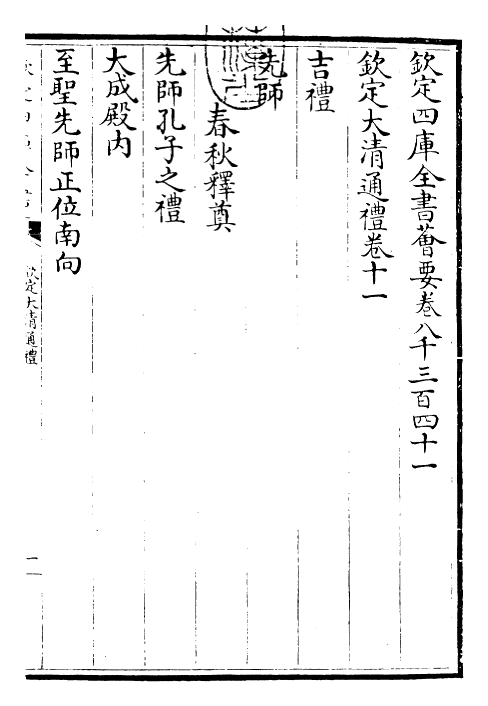 欽定四庫全書薈要卷八千三百四十一
欽定大清通禮卷十一
吉禮
先師
春秋釋奠
先師孔子之禮
大成殿內
至聖先師正位南向
欽定大清通禮
一